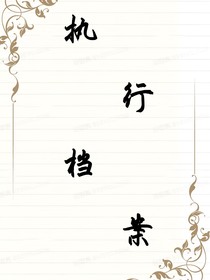 执
行
档
案